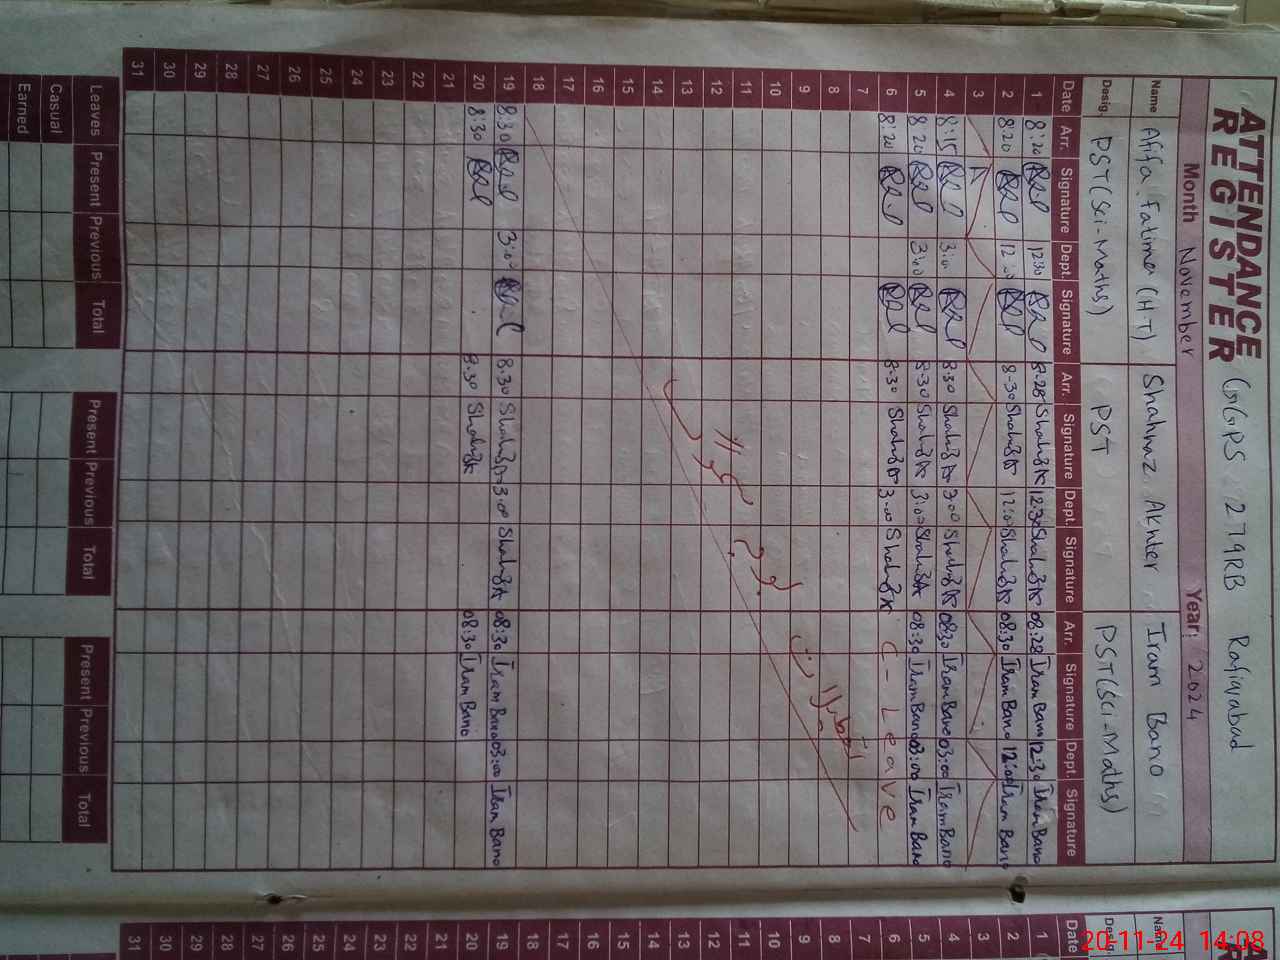 ATTENDANCE REGISTER
GGPS 279RB Rafiqabad
Month November Year: 2024
Name Afifa Fatima (H-T) Shahnaz Akhter Iram Bano
Desig. PST(Sci-Maths) PST PST(Sci-Maths)
Date Arr. Signature Dept. Signature Arr. Signature Dept. Signature Arr. Signature Dept. Signature
1 8:20 12:30 8:28 12:30 08:28 Iram Bano 12:30 Iram Bano
2 8:20 12:00 8-30 12:00 08:30 Iram Bano 12:00 Iram Bano
3
4 8:15 3:00 8:30 3:00 08:30 Iram Bano 03:00 Iram Bano
5 8:20 3:00 8-30 3:00 08:30 Iram Bano 03:00 Iram Bano
6 8:20 8-30 3:00 C-Leave
7
8
9
10
11
12
13
14
15
16
17
18
19 8:30 3:00 8:30 3:00 08:30 Iram Bano 03:00 Iram Bano
20 8:30 8:30 08:30 Iram Bano
21
22
23
24
25
26
27
28
29
30
31
Leaves Present Previous Total Present Previous Total Present Previous Total
Casual
Earned
Name
Desig.
Date
1
2
3
4
5
6
7
8
9
10
11
12
13
14
15
16
17
18
19
20
21
22
23
24
25
26
27
28
29
30
31
20-11-24 14:08